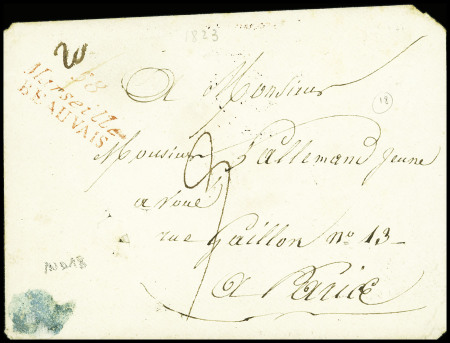 1823
78
Marseille
BEAUVAIS
A Monsieur
18
Monsieur Lallemand Jeune
avoué
rue Gaillon nº 13
A Paris